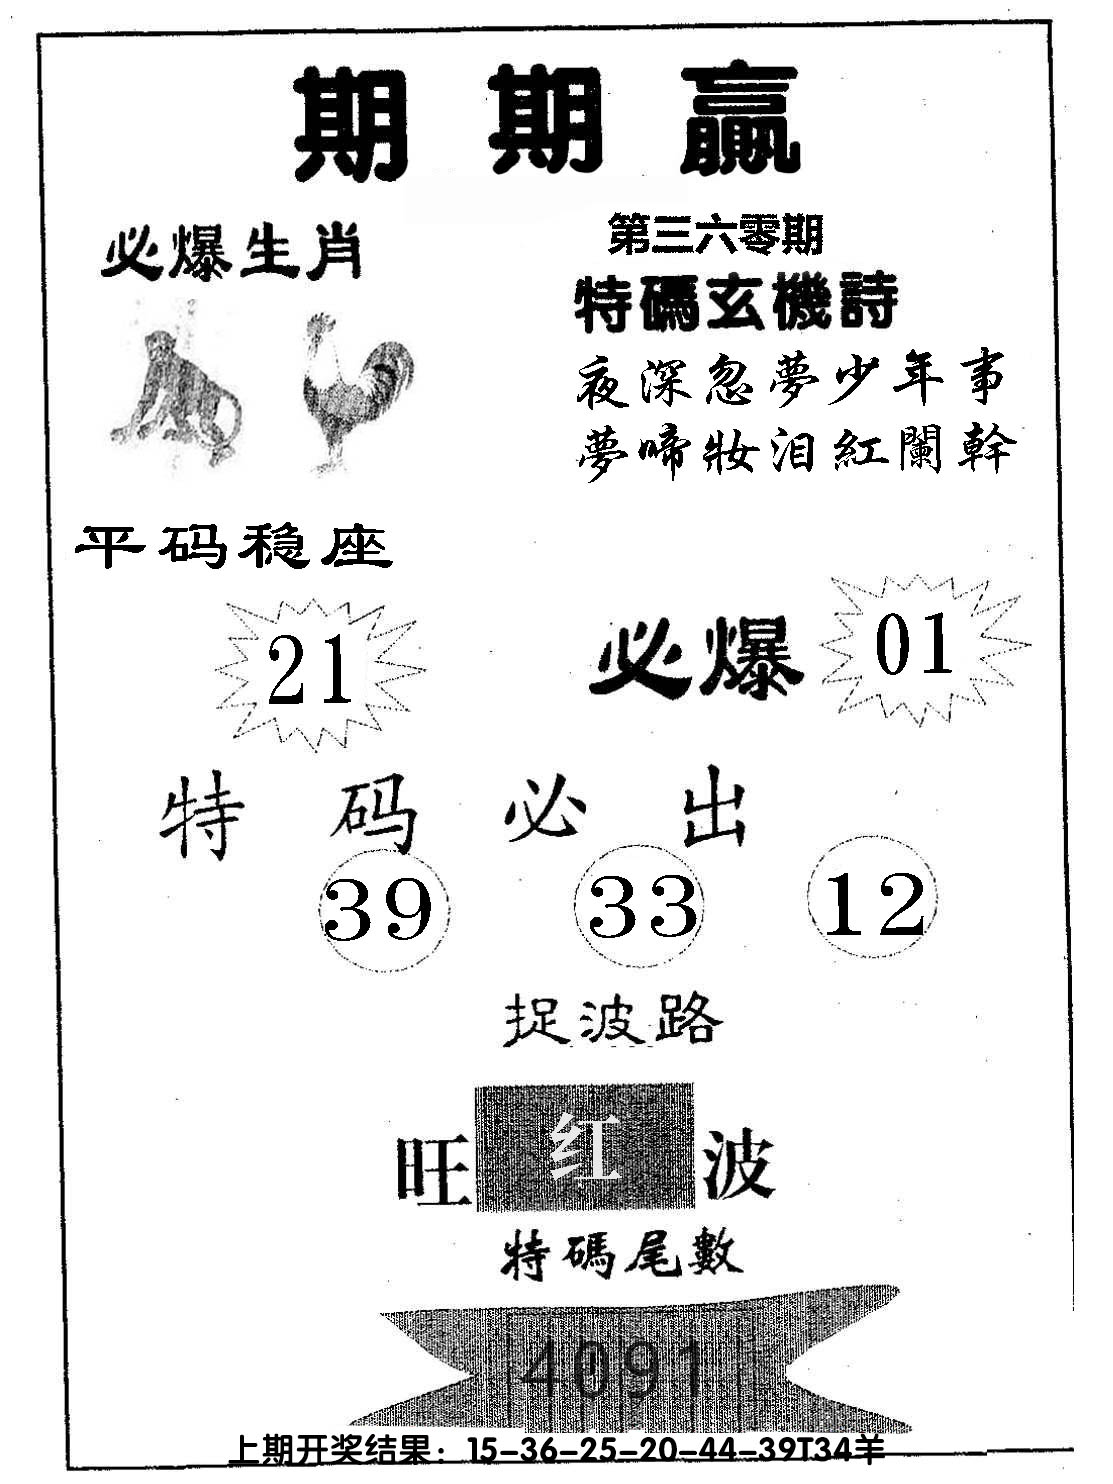 期期贏
必爆生肖
第三六零期
特碼玄機詩
夜深忽夢少年事
夢啼妝泪紅闌幹
平码稳座
21
必爆
01
特码必出
39 33 12
捉波路
旺红波
特碼尾數
4091
上期开奖结果：15-36-25-20-44-39T34羊